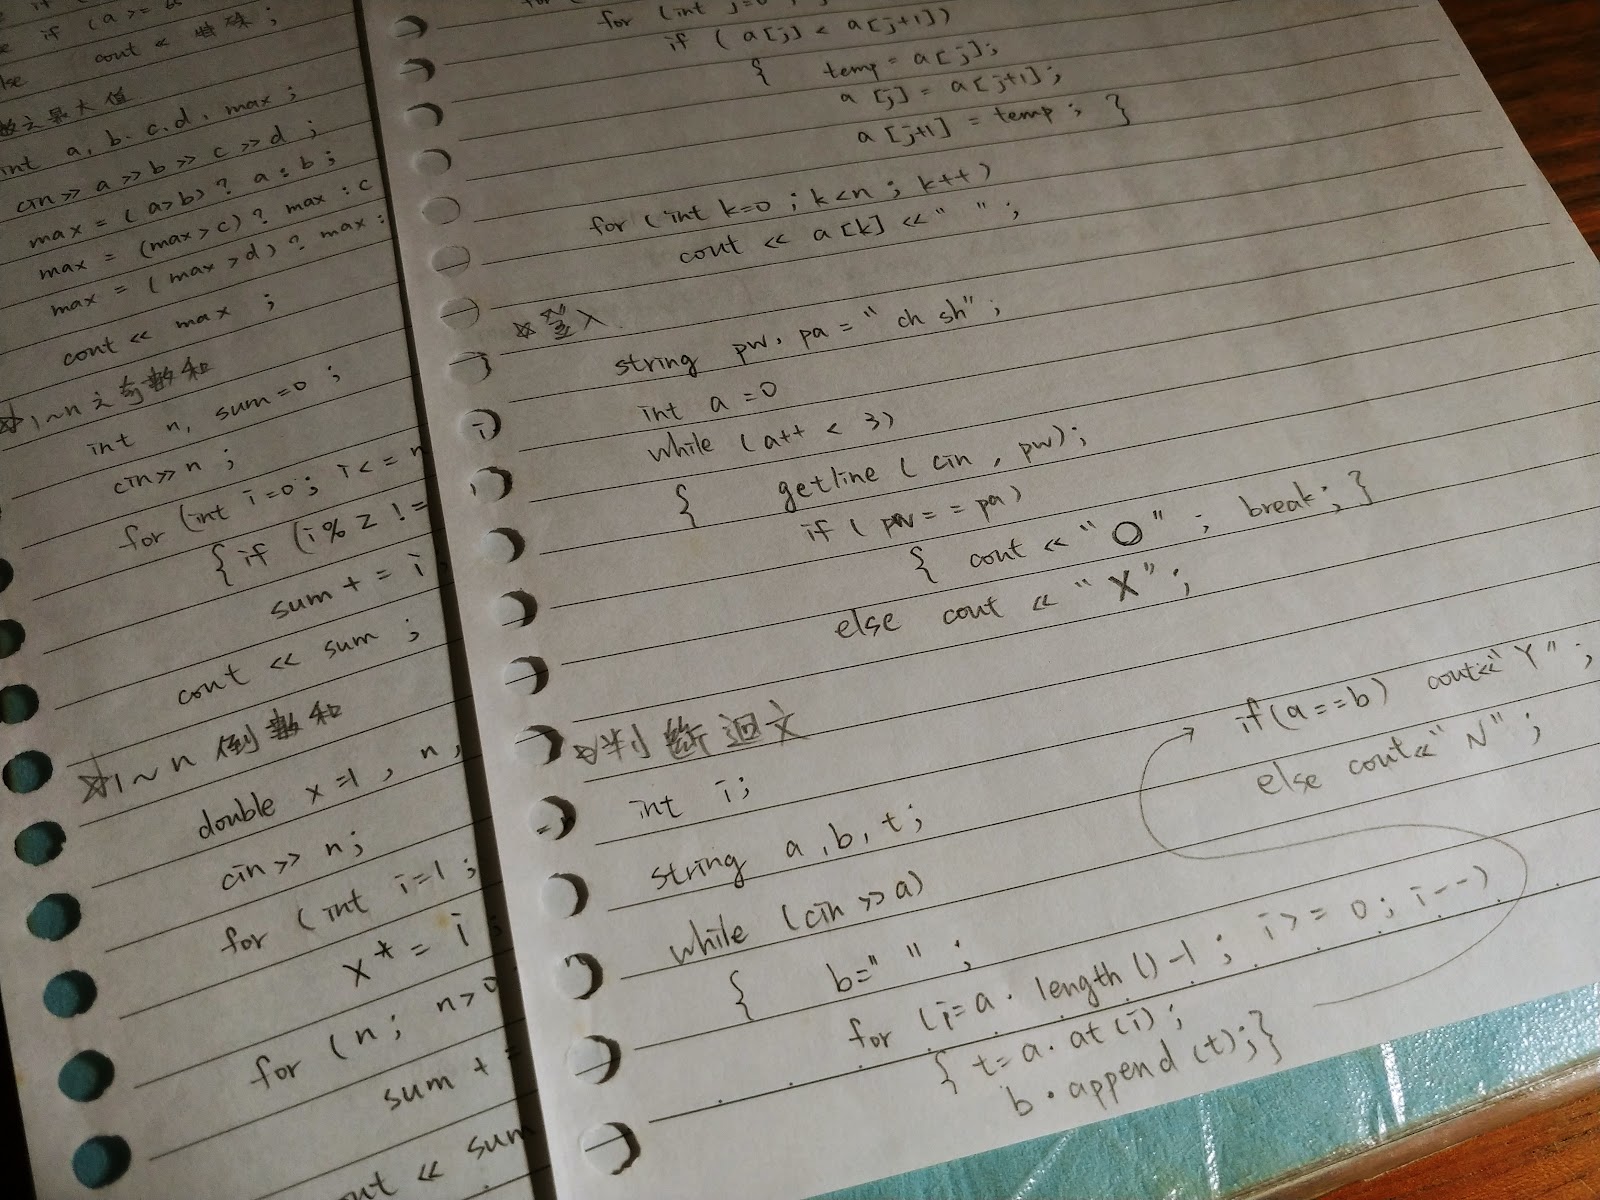 if (a >=
else cout << 特殊 ;
數之最大值
int a, b, c, d, max ;
cin >> a >> b >> c >> d ;
max = ( a>b) ? a : b ;
max = (max > c) ? max : c
max = ( max > d) ? max :
cout << max ;
☆1~n 之奇數和
int n, sum=0 ;
cin >> n ;
for (int i=0 ; i <= n
{ if (i % 2 ! =
sum + = i ;
cout << sum ;
☆1~n 倒數和
double x =1 , n ,
cin >> n;
for ( int i=1 ;
x * = i ;
for ( n ; n>0
sum + =
cout << sum
for (int j=0 ;
if ( a [j] < a [j+1])
{ temp = a[j];
a [j] = a [j+1] ;
a [j+1] = temp ; }
for (int k=0 ; k<n ; k++)
cout << a [k] << " " ;
☆登入
string pw, pa = " ch sh" ;
int a =0
while (a++ < 3)
{ getline ( cin , pw) ;
if ( pw = = pa )
{ cout << " O " ; break; }
else cout << " X " ;
☆判斷迴文
int i ;
string a , b , t ;
while (cin >> a)
{ b=" " ;
for (i=a . length () -1 ; i > = 0 ; i - -)
{ t= a . at (i) ;
b . append (t) ; }
if (a = = b) cout<<" Y " ;
else cout<<" N" ;